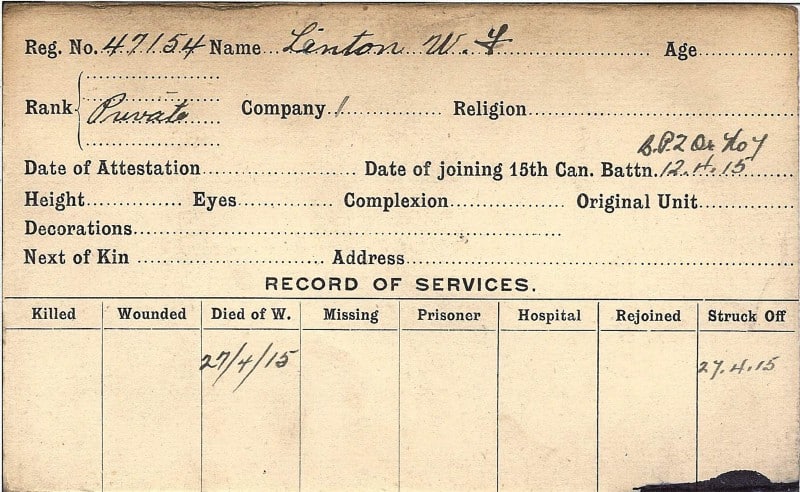 Reg. No. 47154 Name Linton W. F Age
Rank Private Company 1 Religion
Date of Attestation Date of joining 15th Can. Battn. 12.4.15
Height Eyes Complexion Original Unit
Decorations
Next of Kin Address
RECORD OF SERVICES.
Killed Wounded Died of W. Missing Prisoner Hospital Rejoined Struck Off
27/4/15 27.4.15